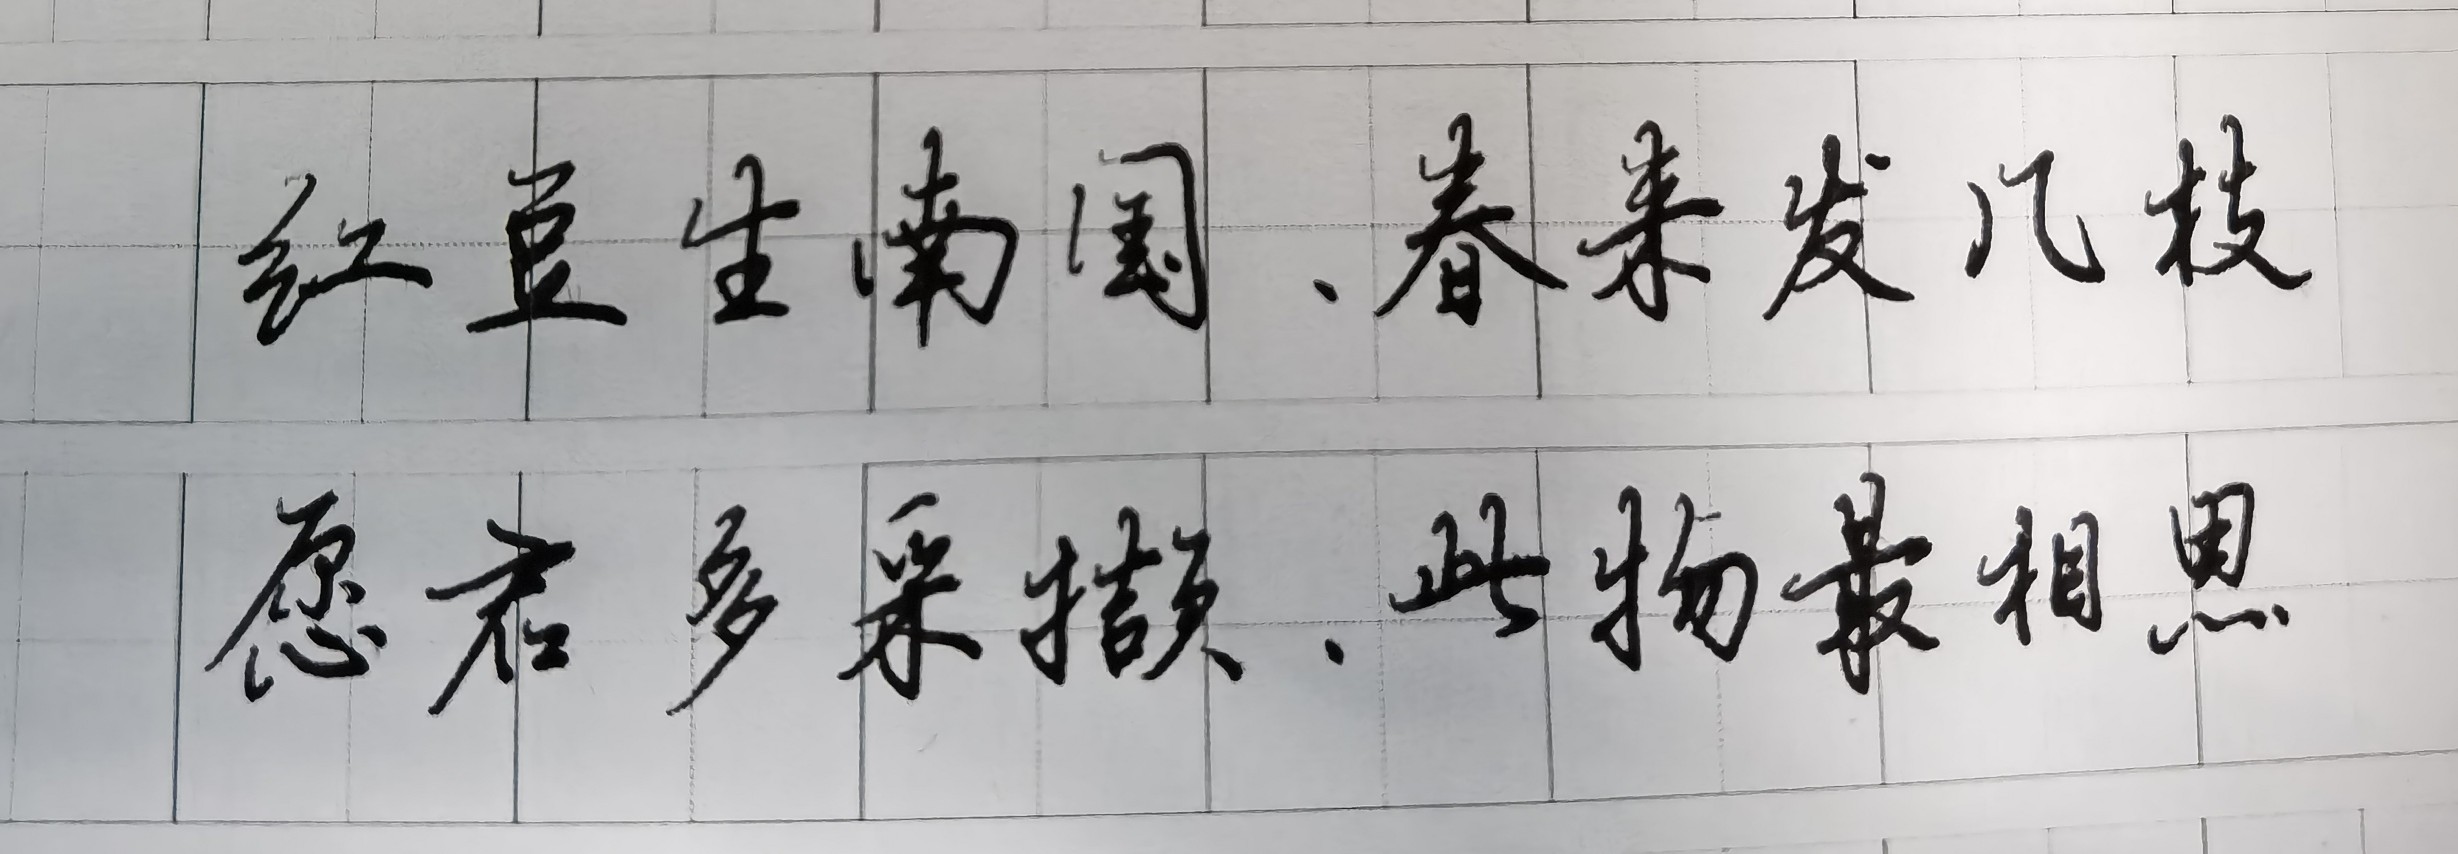 红豆生南国、春来发几枝
愿君多采撷、此物最相思